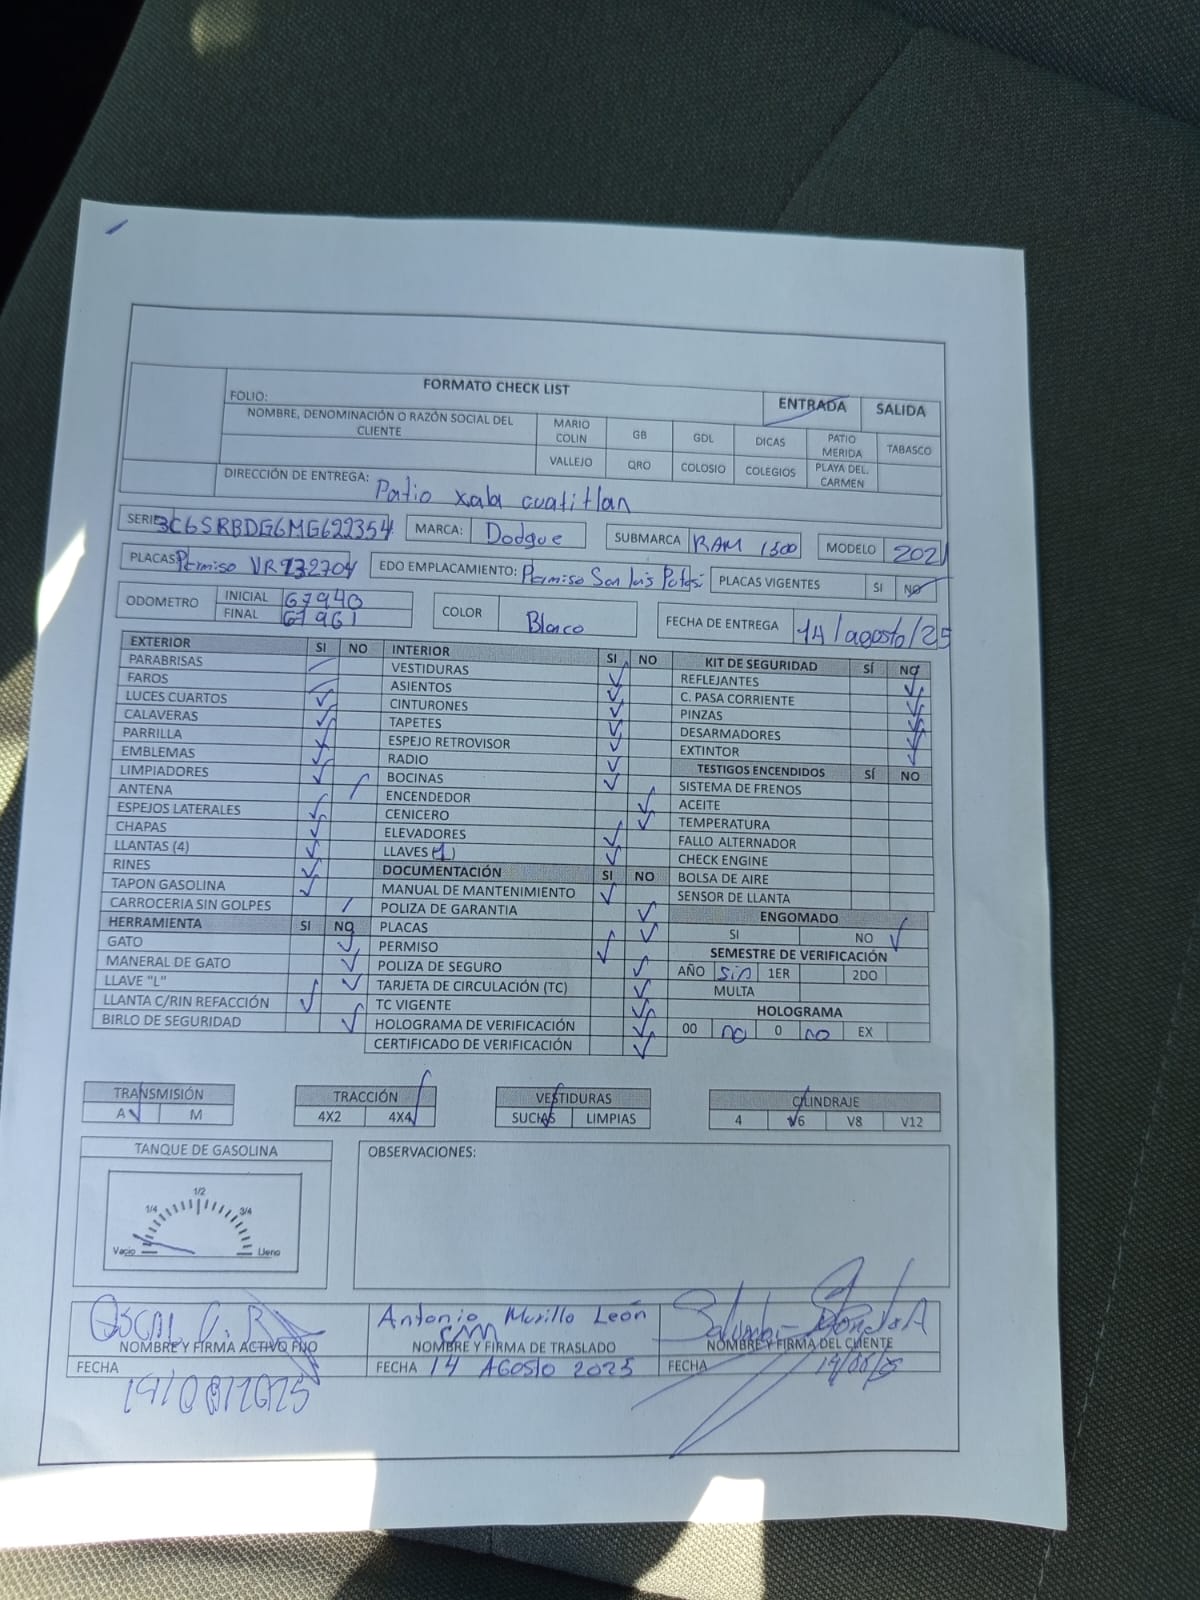 FORMATO CHECK LIST
FOLIO: ENTRADA SALIDA
NOMBRE, DENOMINACIÓN O RAZÓN SOCIAL DEL CLIENTE MARIO COLIN GB GDL DICAS PATIO MERIDA TABASCO
VALLEJO QRO COLOSIO COLEGIOS PLAYA DEL. CARMEN
DIRECCIÓN DE ENTREGA: Patio xala cuatitlan
SERIE 3C6SRBDG6MG622354 MARCA: Dodgue SUBMARCA RAM 1500 MODELO 2021
PLACAS Permiso EDO EMPLACAMIENTO: Permiso San Luis Potosi PLACAS VIGENTES SI NO
ODOMETRO INICIAL 67940 COLOR Blanco FECHA DE ENTREGA 14/agosto/25
FINAL 67961
EXTERIOR SI NO
PARABRISAS
FAROS
LUCES CUARTOS
CALAVERAS
PARRILLA
EMBLEMAS
LIMPIADORES
ANTENA
ESPEJOS LATERALES
CHAPAS
LLANTAS (4)
RINES
TAPON GASOLINA
CARROCERIA SIN GOLPES
HERRAMIENTA SI NO
GATO
MANERAL DE GATO
LLAVE "L"
LLANTA C/RIN REFACCIÓN
BIRLO DE SEGURIDAD
INTERIOR SI NO
VESTIDURAS
ASIENTOS
CINTURONES
TAPETES
ESPEJO RETROVISOR
RADIO
BOCINAS
ENCENDEDOR
CENICERO
ELEVADORES
LLAVES (1)
DOCUMENTACIÓN SI NO
MANUAL DE MANTENIMIENTO
POLIZA DE GARANTIA
PLACAS
PERMISO
POLIZA DE SEGURO
TARJETA DE CIRCULACIÓN (TC)
TC VIGENTE
HOLOGRAMA DE VERIFICACIÓN
CERTIFICADO DE VERIFICACIÓN
KIT DE SEGURIDAD SÍ NO
REFLEJANTES
C. PASA CORRIENTE
PINZAS
DESARMADORES
EXTINTOR
TESTIGOS ENCENDIDOS SÍ NO
SISTEMA DE FRENOS
ACEITE
TEMPERATURA
FALLO ALTERNADOR
CHECK ENGINE
BOLSA DE AIRE
SENSOR DE LLANTA
ENGOMADO
SI NO
SEMESTRE DE VERIFICACIÓN
AÑO sin 1ER 2DO
MULTA
HOLOGRAMA
00 no 0 no EX
TRANSMISIÓN TRACCIÓN VESTIDURAS CILINDRAJE
A M 4X2 4X4 SUCIAS LIMPIAS 4 V6 V8 V12
TANQUE DE GASOLINA OBSERVACIONES:
1/2
1/4 3/4
Vacio Lleno
Oscar Antonio Murillo León
NOMBRE Y FIRMA ACTIVO FIJO NOMBRE Y FIRMA DE TRASLADO NOMBRE Y FIRMA DEL CLIENTE
FECHA FECHA 14 AGOSTO 2025 FECHA